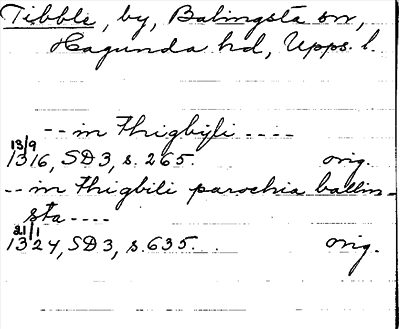 Tibble, by, Balingsta sn,
Hagunda hd, Upps. l.
-- in Thigbili ----
13/9
1316, SD 3, s. 265. orig.
-- in Thigbili parochia ballin-
sta ----
21/1
1324, SD 3, s. 635. orig.